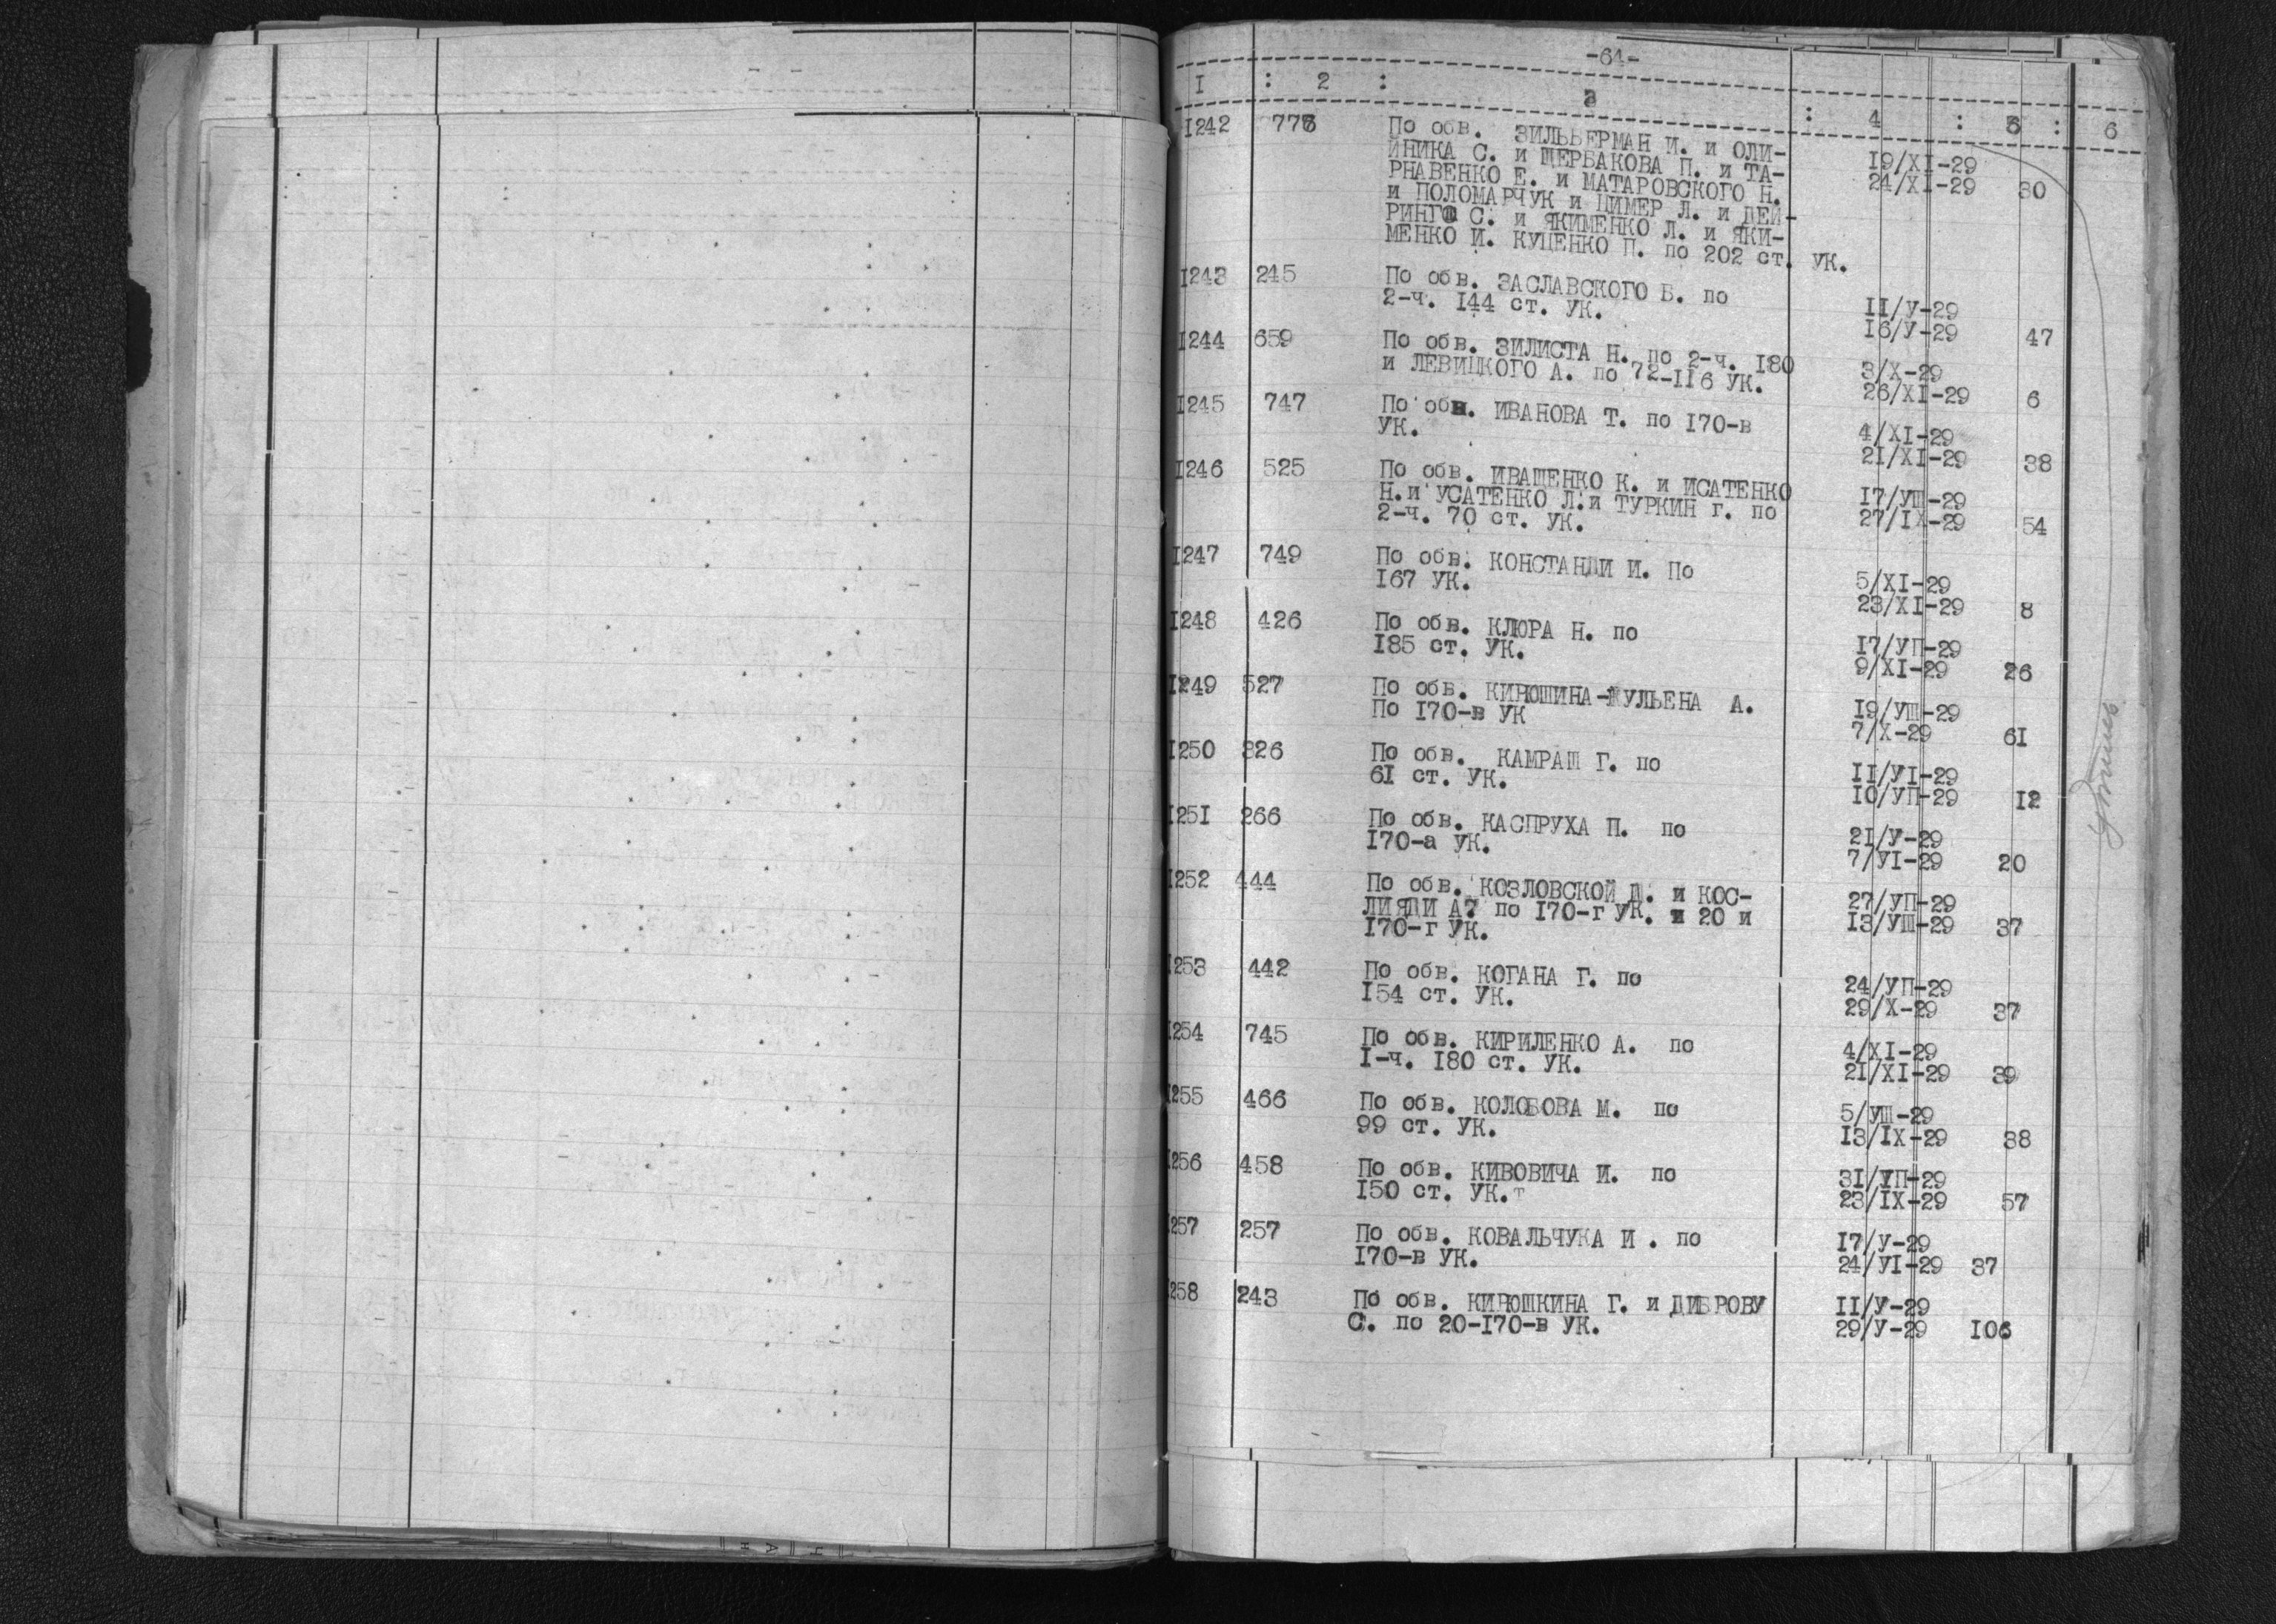 -61-
I : 2 : 3 : 4 : 5 : 6
I242 778 По обв. ЗИЛЬБЕРМАН И. и ОЛИ-
ЙНИКА С. и ЩЕРБАКОВА П. и ТА- I9/XI-29
РНАВЕНКО Е. и МАТАРОВСКОГО Н. 24/XI-29 30
и ПОЛОМАРЧУК и ЦИМЕР Л. и ДЕЙ-
РИНГШ С. и ЯКИМЕНКО Л. и ЯКИ-
МЕНКО И. КУЦЕНКО П. по 202 ст. УК.
I243 245 По обв. ЗАСЛАВСКОГО Б. по II/У-29
2-ч. I44 ст. УК. I6/У-29 47
I244 659 По обв. ЗИЛИСТА Н. по 2-ч. I80 3/Х-29
и ЛЕВИЦКОГО А. по 72-II6 УК. 26/XI-29 6
I245 747 По обв. ИВАНОВА Т. по I70-в 4/XI-29
УК. 2I/XI-29 38
I246 525 По обв. ИВАЩЕНКО К. и ИСАТЕНКО I7/УШ-29
Н.и УСАТЕНКО Л.и ТУРКИН г. по 27/IX-29 54
2-ч. 70 ст. УК.
I247 749 По обв. КОНСТАНДИ И. По 5/XI-29
I67 УК. 23/XI-29 8
I248 426 По обв. КЛЮРА Н. по I7/УП-29
I85 ст. УК. 9/XI-29 26
I249 527 По обв. КИРЮШИНА-ЖУЛЬЕНА А. I9/УШ-29
По I70-в УК 7/Х-29 6I
I250 326 По обв. КАМРАШ Г. по II/УI-29
6I ст. УК. I0/УП-29 I2
I25I 266 По обв. КАСПРУХА П. по 2I/У-29
I70-а УК. 7/УI-29 20
I252 444 По обв. КОЗЛОВСКОЙ Д. и КОС- 27/УП-29
ЛИЯДИ А? по I70-г УК. и 20 и I3/УШ-29 37
I70-г УК.
I253 442 По обв. КОГАНА Г. по 24/УП-29
I54 ст. УК. 29/Х-29 37
I254 745 По обв. КИРИЛЕНКО А. по 4/XI-29
I-ч. I80 ст. УК. 2I/XI-29 39
I255 466 По обв. КОЛОБОВА М. по 5/УШ-29
99 ст. УК. I3/IX-29 38
I256 458 По обв. КИВОВИЧА И. по 3I/УП-29
I50 ст. УК.т 23/IX-29 57
257 257 По обв. КОВАЛЬЧУКА И . по I7/У-29
I70-в УК. 24/УI-29 37
258 243 По обв. КИРЮШКИНА Г. и ДИБРОВУ II/У-29
С. по 20-I70-в УК. 29/У-29 I06